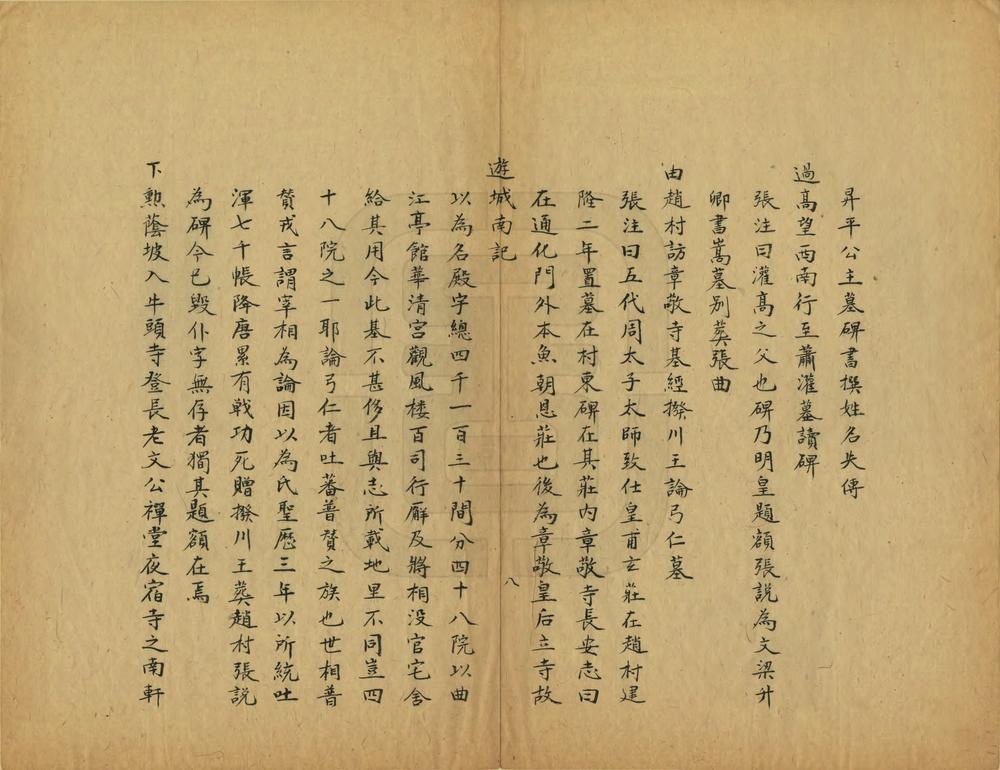 昇平公主墓碑書撰姓名失傳
過高望西南行至蕭灌墓讀碑
張注曰灌高之父也碑乃明皇題額張說為文梁升
卿書嵩墓別葬張曲
由趙村訪章敬寺基經撥川王論弓仁墓
張注曰五代周太子太師致仕皇甫玄莊在趙村建
隆二年置墓在村東碑在其莊內章敬寺長安志曰
在通化門外本魚朝恩莊也後為章敬皇后立寺故
遊城南記
八
以為名殿字總四千一百三十間分四十八院以曲
江亭館華清宮觀風楼百司行廨及將相没官宅舍
給其用今此基不甚侈且與志所載地里不同豈四
十八院之一耶論弓仁者吐蕃普贊之族也世相普
贊戎言謂宰相為論因以為氏聖歷三年以所統吐
渾七千帳降唐累有戰功死贈撥川王葬趙村張說
為碑今已毀仆字無存者獨其題額在焉
下勲蔭坡入牛頭寺登長老文公禪堂夜宿寺之南軒